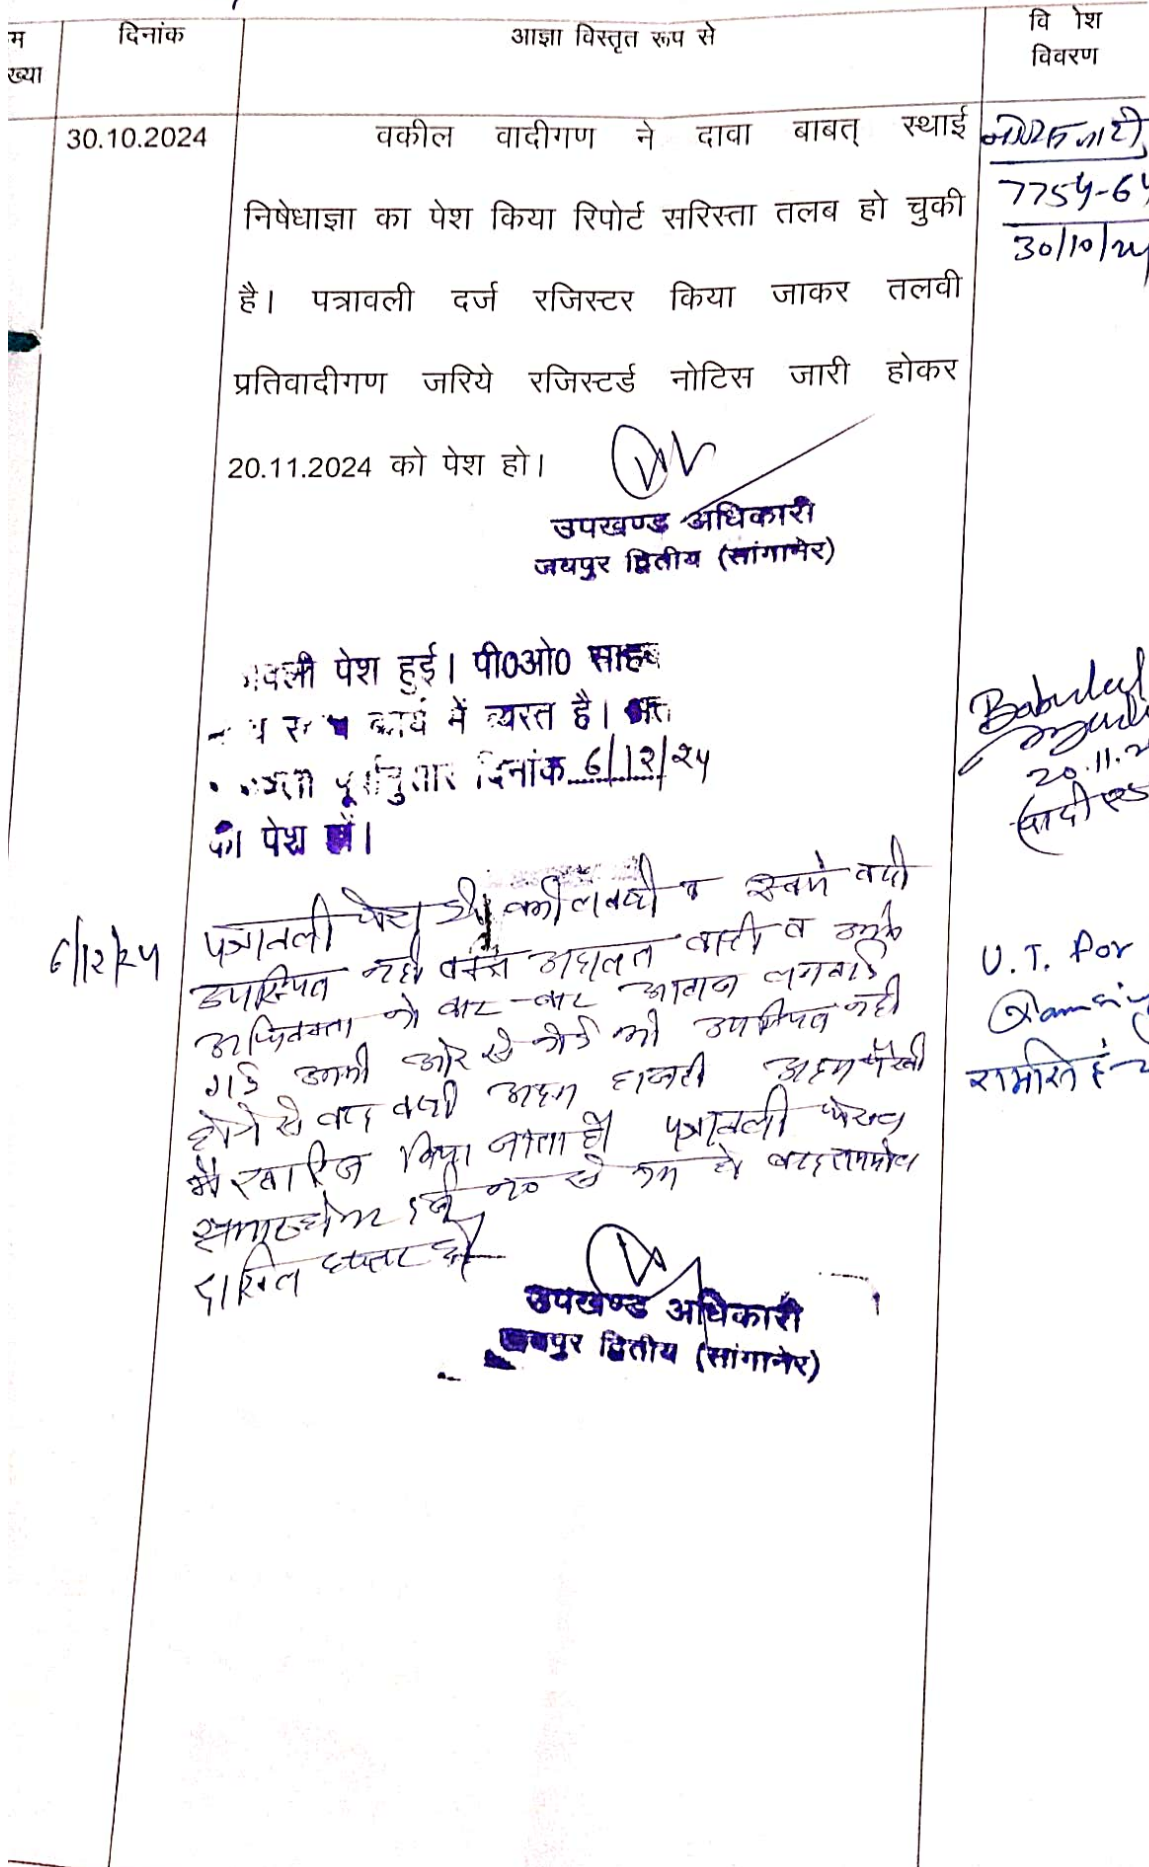 म
ख्या
दिनांक
आज्ञा विस्तृत रूप से
वि ोश
विवरण
30.10.2024
वकील वादीगण ने दावा बाबत् स्थाई
निषेधाज्ञा का पेश किया रिपोर्ट सरिस्ता तलब हो चुकी
है। पत्रावली दर्ज रजिस्टर किया जाकर तलवी
प्रतिवादीगण जरिये रजिस्टर्ड नोटिस जारी होकर
20.11.2024 को पेश हो।
जारी
7754-6
30/10/24
उपखण्ड अधिकारी
जयपुर द्वितीय (सांगानेर)
वली पेश हुई। पी0ओ0 साहब
कार्य में व्यस्त है।
दिनांक 6/12/24
को पेश हो।
Babulal
20.11.2
6/12/24
पत्रावली पेश हुई वकील वादी व स्वयं वादी
उपस्थित नहीं वक्त अदालत वादी व उनके
अधिवक्ता को बार-बार आवाज लगवाई
गई उनकी ओर से कोई भी उपस्थित नही
होने से वाद वादी अदम हाजरी अदम पैरवी
में खारिज किया जाता है। पत्रावली फैसल
नं० से कम हो
दाखिल दफ्तर हो
U.T. for
उपखण्ड अधिकारी
जयपुर द्वितीय (सांगानेर)